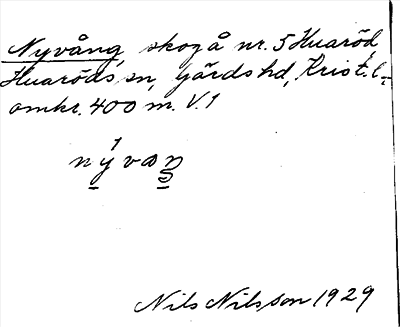 Nyvång, skog å nr. 5 Huaröd,
Huaröds sn, Gärds hd, Krist. l.
omkr. 400 m. V. 1
nývaŋ
Nils Nilsson 1929